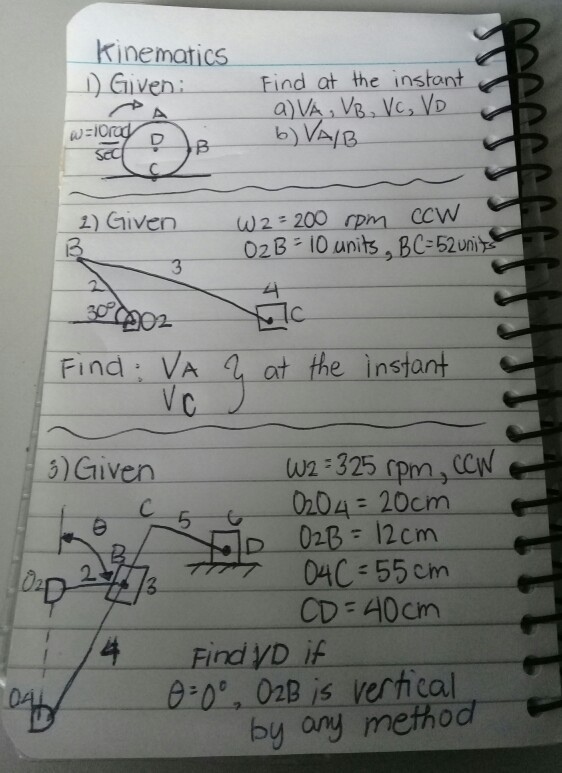 Kinematics
1) Given: Find at the instant
a) VA, VB, VC, VD
b) VA/B
ω=10rad/sec
A
D
B
C
2) Given ω2 = 200 rpm CCW
O2B = 10 units, BC = 52units
B
3
2
4
30° O2
C
Find: VA } at the instant
VC
3) Given ω2 = 325 rpm, CCW
O2O4 = 20cm
O2B = 12cm
O4C = 55cm
CD = 40cm
C 5 6
θ
B
D
O2 2 3
4
O4
Find VD if
θ=0°, O2B is vertical
by any method